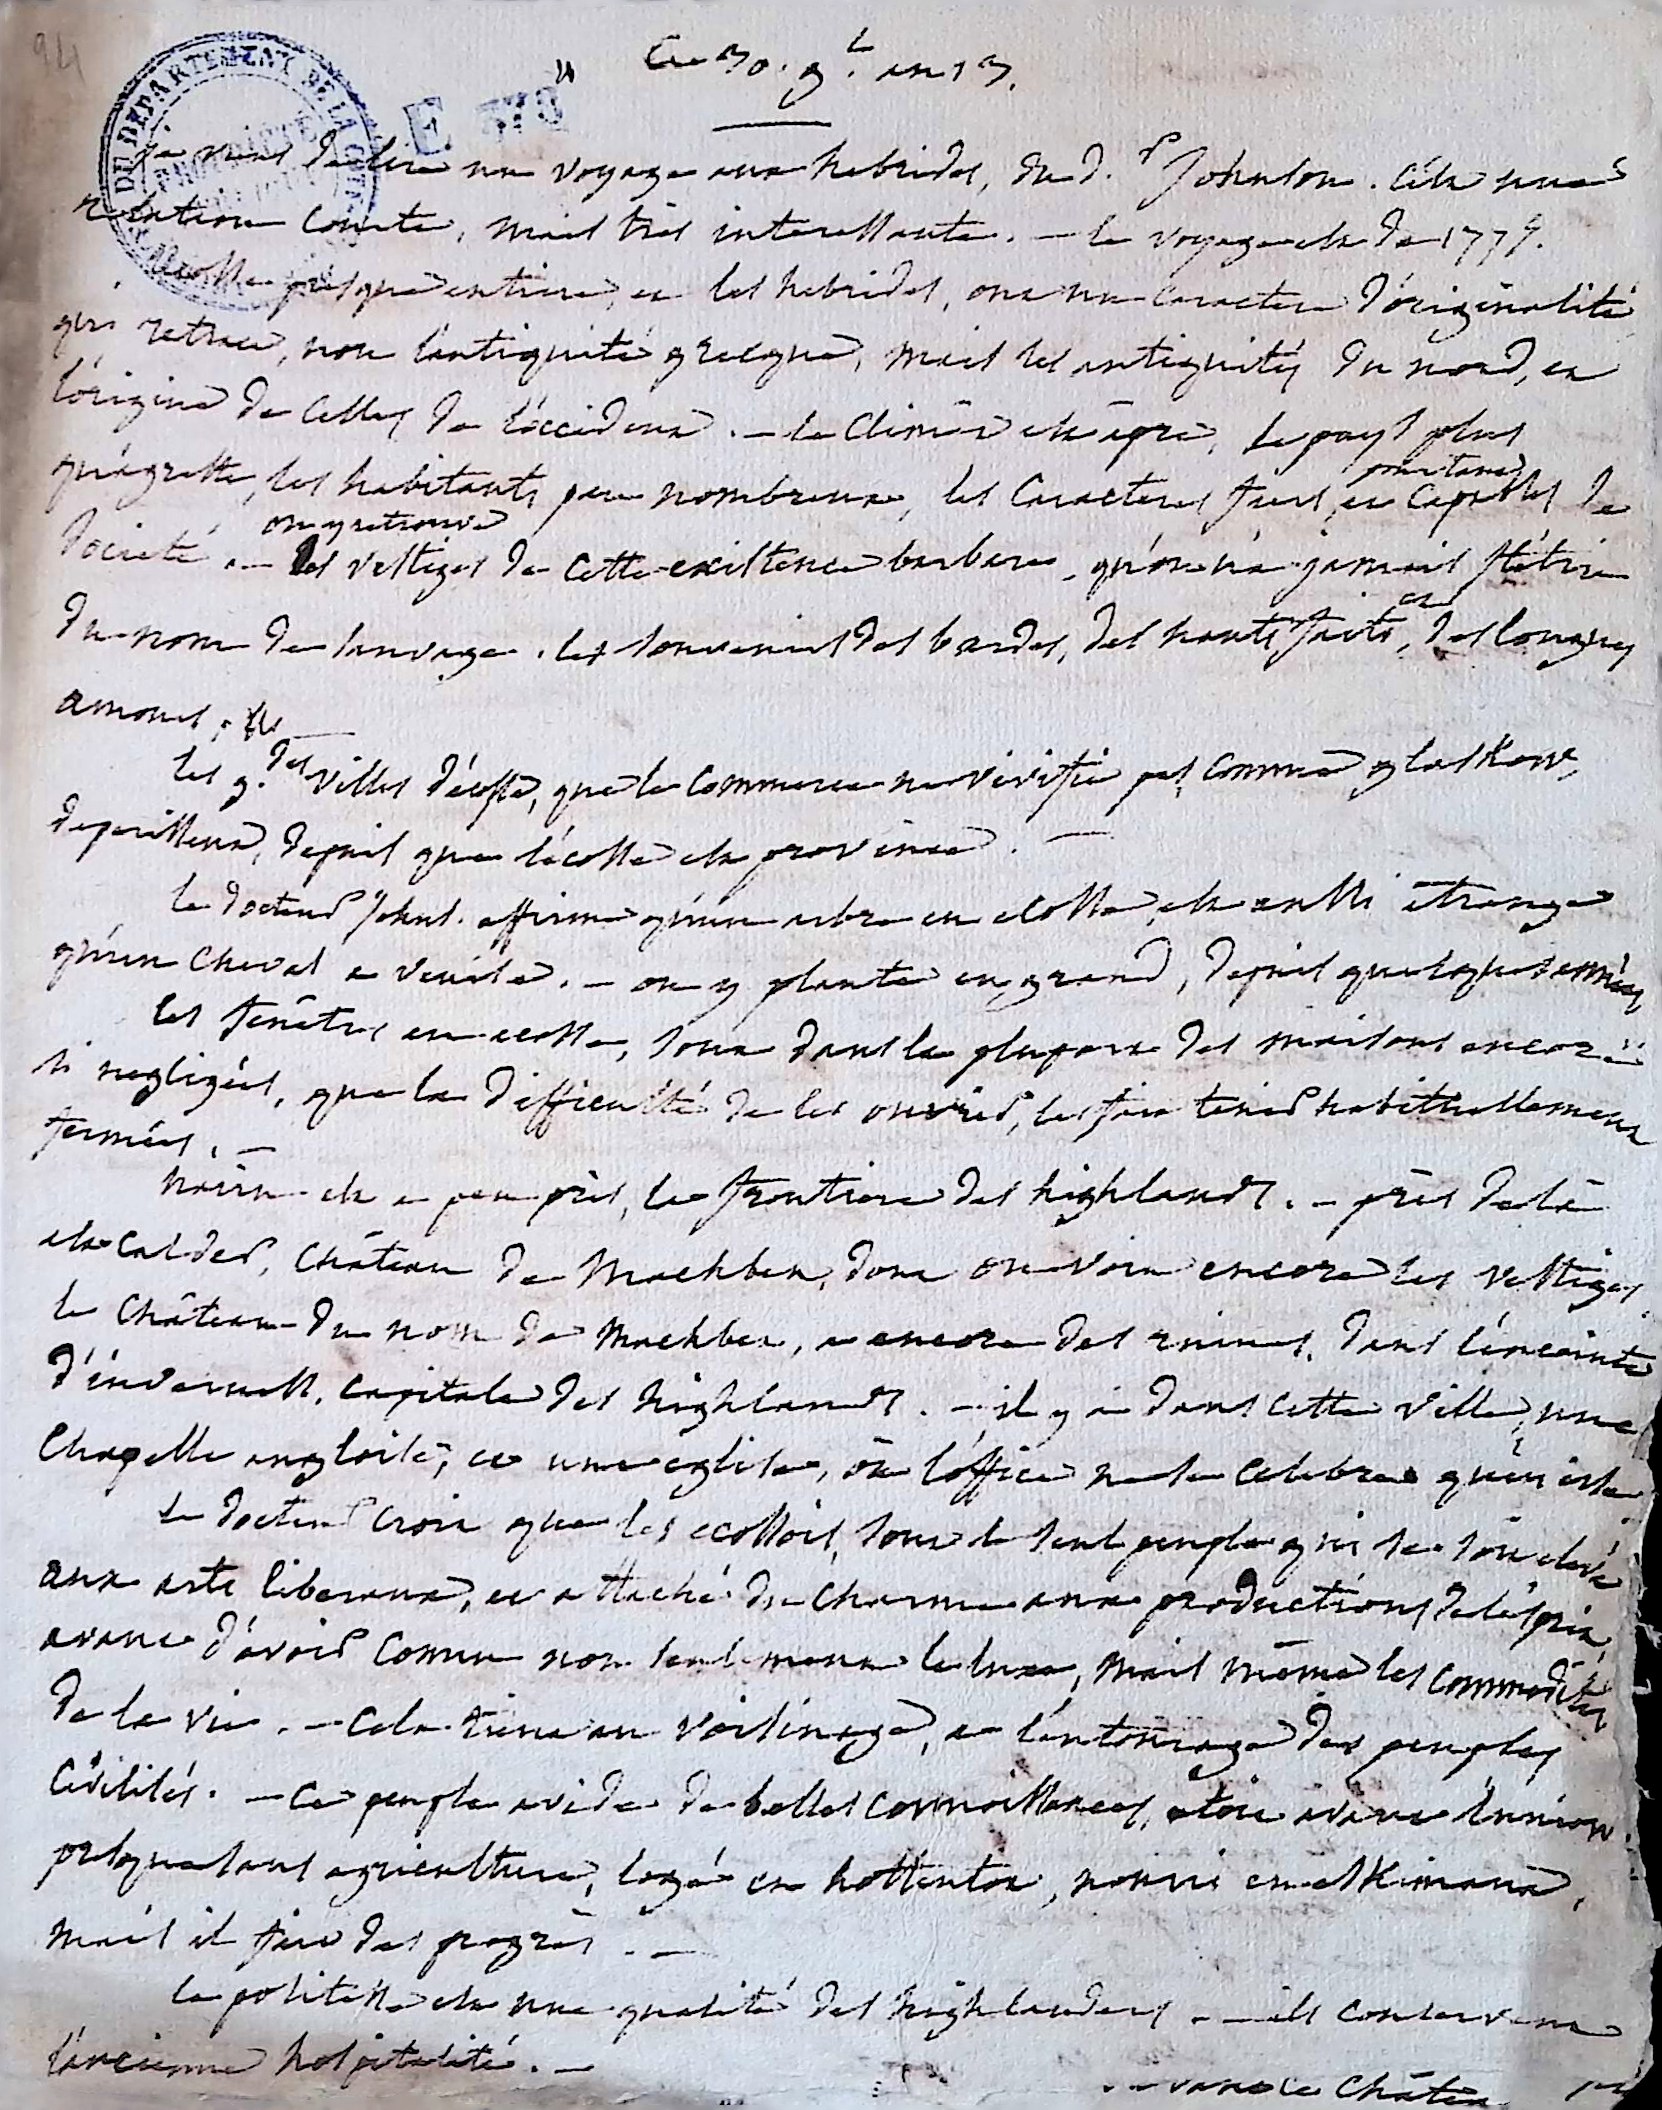 94
Ce 30. g.l an 13.
DU DEPARTEMENT DE LA
E
je viens de lire un voyage aux hebrides, du d.r Johnson. c'est une
relation courte, mais très interessante. — le voyage est de 177
l'écosse presque entiere, et les hebrides, ont un caractere d'originalité
qui retrace, non l'antiquité grecque, mais les antiquités du nord, et
l'origine de celles de l'occident. — le climat est âpre, le pays plus
qu'agreste, les habitants peu nombreux, les caracteres fiers, et pourtant capables de
société. — on y retrouve les vestiges de cette existence barbare, qu'on n'a jamais flétrie
du nom de sauvage. les souvenirs des bardes, des hauts faits, et des longues
amours.
les g.des villes d'écosse, que le commerce ne vivifie pas, comme glaskow,
deperissent, depuis que l'écosse est province. —
le docteur Johns. affirme qu'un arbre en ecosse, est aussi étrange
qu'un cheval a venise. — on y plante en grand, depuis quelques années
les fenêtres en ecosse, sont dans la plupart des maisons encore
si negligées, que la difficulté de les ouvrir, les fait tenir habituellement
fermées. —
Nairn est a peu près, la frontiere des highlands. — près de là
est calder, château de Mackbet, dont on voit encore les vestiges
le château du nom de Mackbet, a encore des ruines, dans l'enceinte
d'inverness, capitale des highlands. — il y a dans cette ville, une
chapelle angloise, et une eglise, où l'office ne se celebre qu'en erse
le docteur croit que les ecossois, sont le seul peuple qui se soit elevé
aux arts liberaux, et attaché du charme aux productions de l'esprit,
avant d'avoir connu non seulement le luxe, mais même les commodités
de la vie. — cela tient au voisinage, a l'entourage des peuples
civilisés. — ce peuple avide de belles connoissances, etoit avant l'union
presque sans agriculture, logé en hottentot, nourri en eskimaux,
mais il fait des progrès. —
la politesse est une qualité des highlanders. — ils conservent
l'ancienne hospitalité. —
château